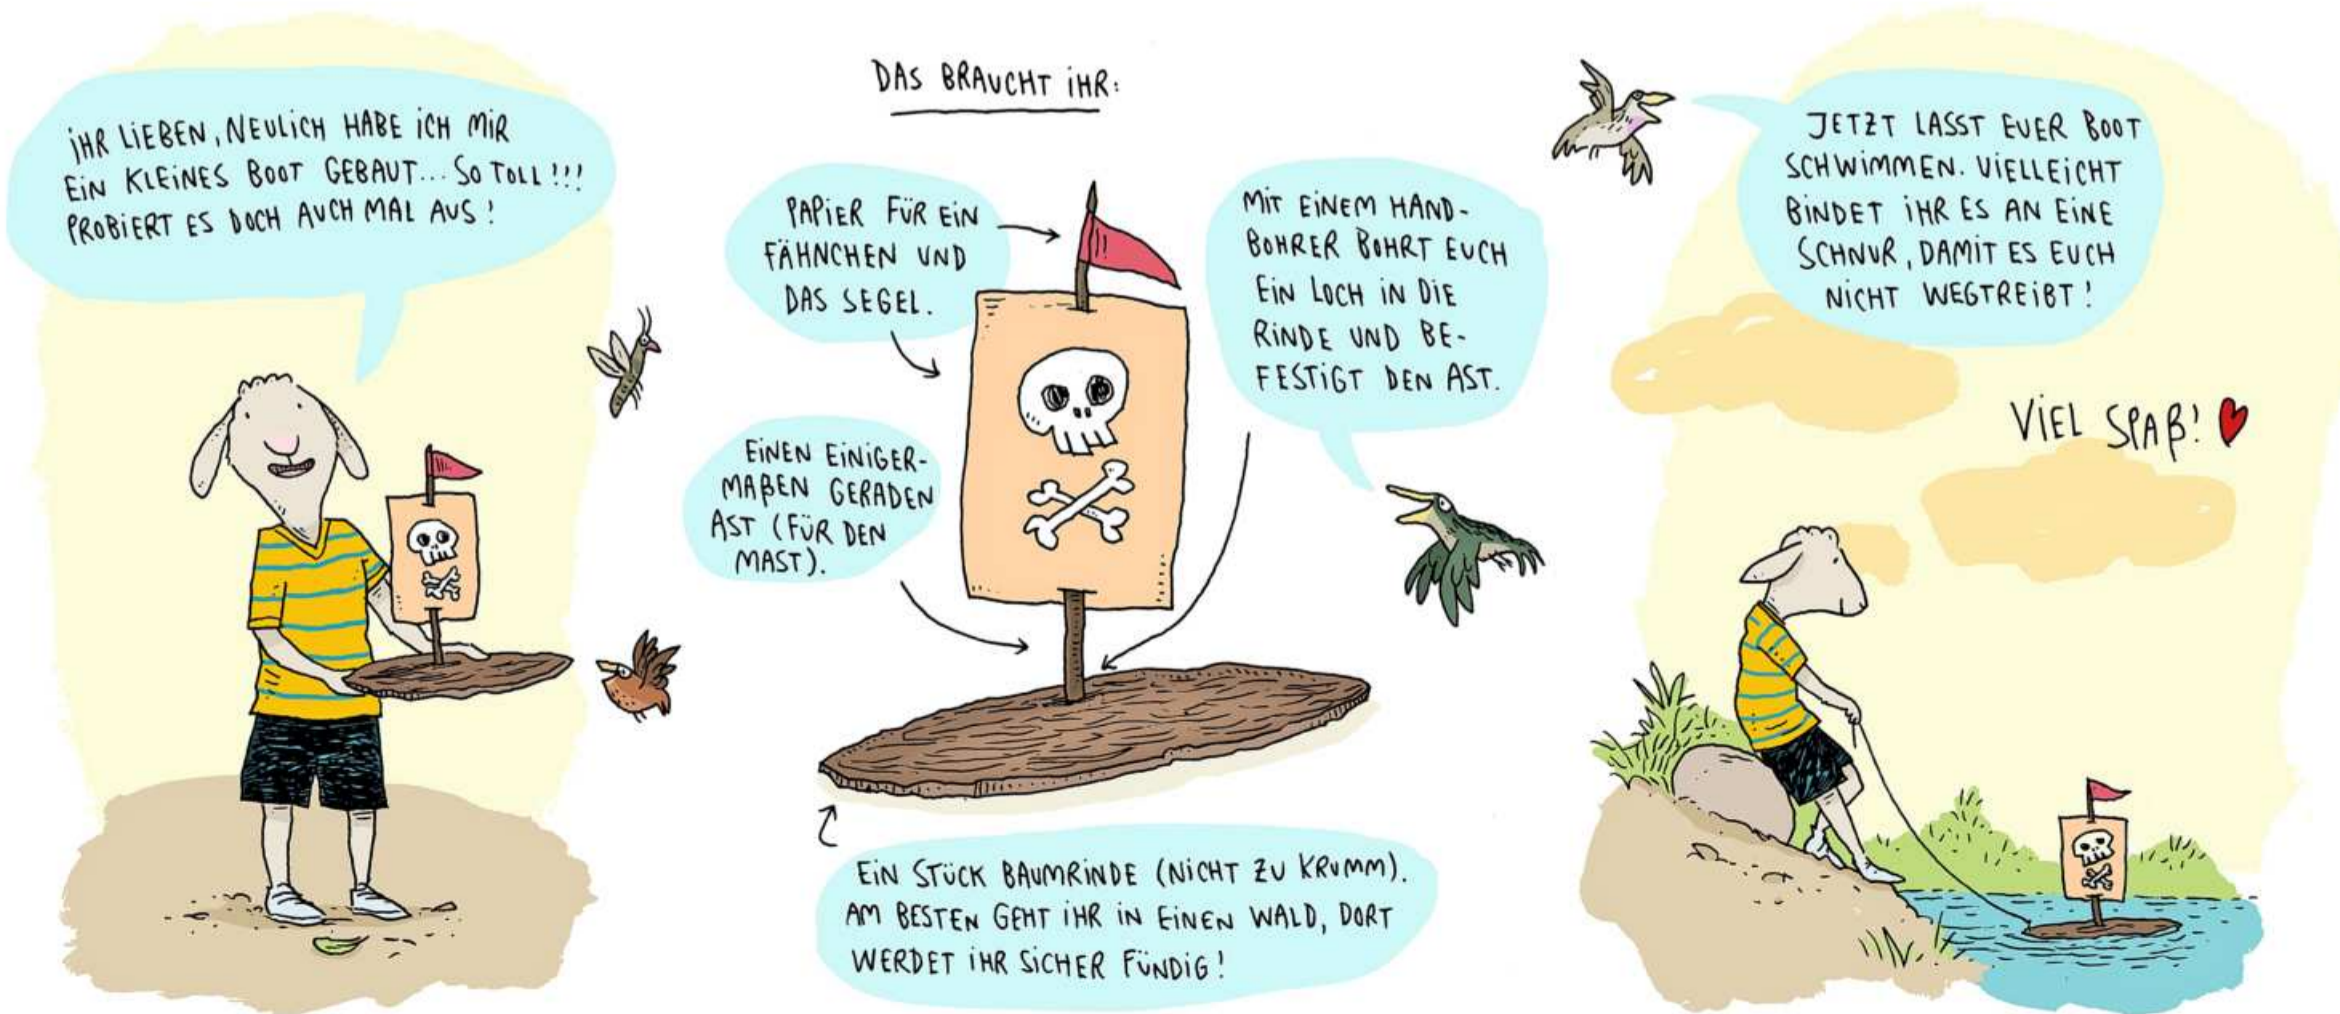 IHR LIEBEN, NEULICH HABE ICH MIR
EIN KLEINES BOOT GEBAUT... SO TOLL!!!
PROBIERT ES DOCH AUCH MAL AUS!
DAS BRAUCHT IHR:
PAPIER FÜR EIN
FÄHNCHEN UND
DAS SEGEL.
EINEN EINIGER-
MAßEN GERADEN
AST (FÜR DEN
MAST).
MIT EINEM HAND-
BOHRER BOHRT EUCH
EIN LOCH IN DIE
RINDE UND BE-
FESTIGT DEN AST.
EIN STÜCK BAUMRINDE (NICHT ZU KRUMM).
AM BESTEN GEHT IHR IN EINEN WALD, DORT
WERDET IHR SICHER FÜNDIG!
JETZT LASST EUER BOOT
SCHWIMMEN. VIELLEICHT
BINDET IHR ES AN EINE
SCHNUR, DAMIT ES EUCH
NICHT WEGTREIBT!
VIEL SPAß!